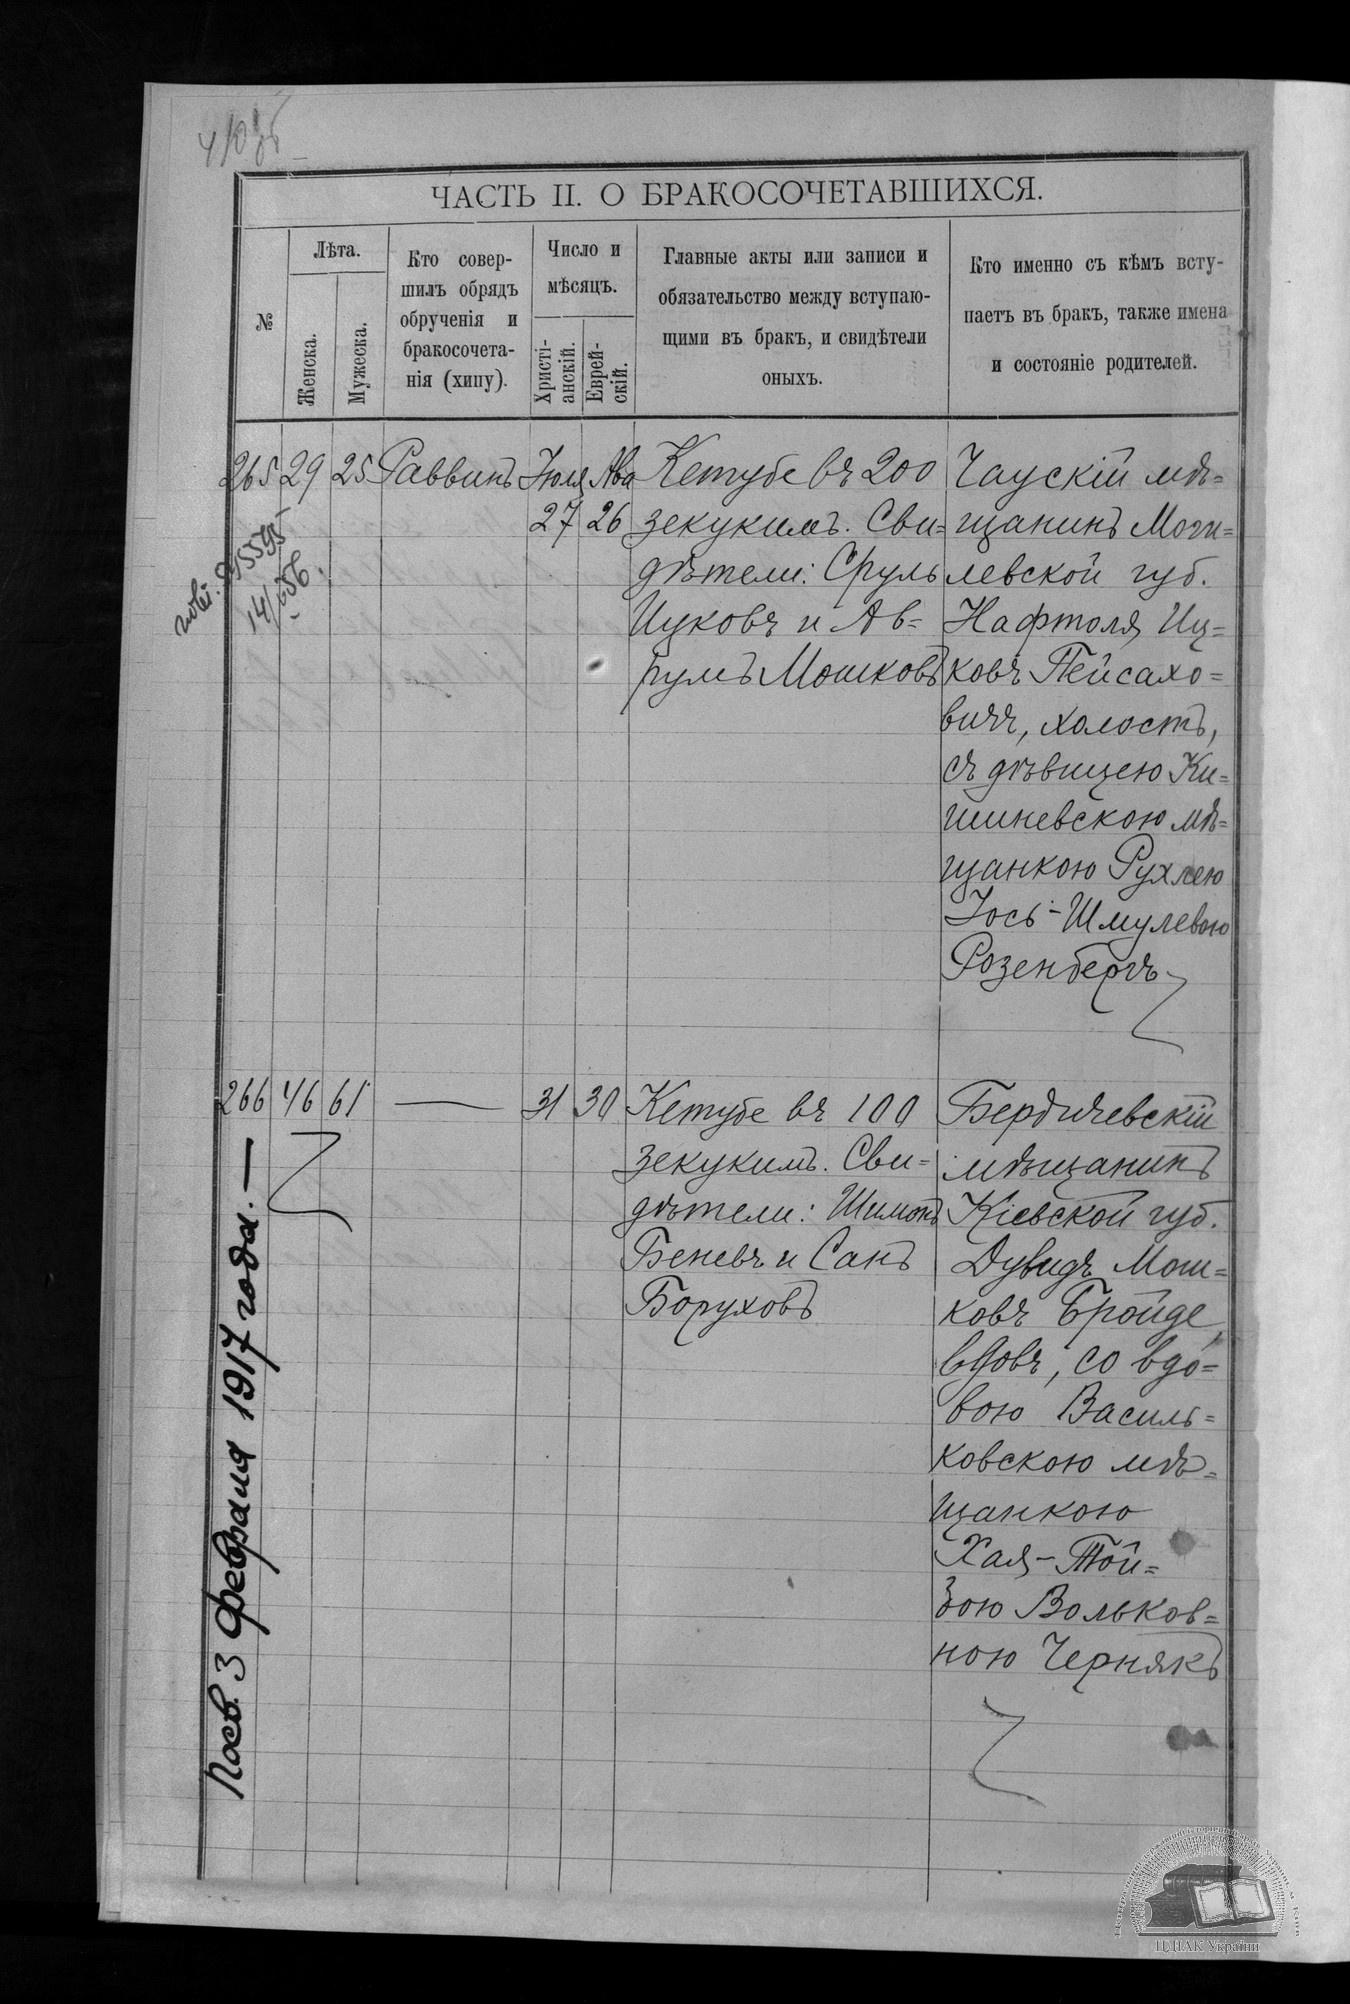 ЧАСТЬ II. О БРАКОСОЧЕТАВШИХСЯ.
№
Лѣта.
Женска.
Мужеска.
Кто совер-
шилъ обрядъ
обрученія и
бракосочета-
нія (хипу).
Число и
мѣсяцъ.
Христі-
анскій.
Еврей-
скій.
Главные акты или записи и
обязательство между вступаю-
щими въ бракъ, и свидѣтели
оныхъ.
Кто именно съ кѣмъ всту-
паетъ въ бракъ, также имена
и состояніе родителей.
265
29
25
Раввинъ
Іюля
27
Ава
26
Кетубе въ 200
зекукимъ. Сви=
дѣтели: Сруль
Ицковъ и Ав=
румъ Мошковъ
Чаускій мѣ=
щанинъ Моги=
левской губ.
Нафтоля Иц=
ковъ Пейсахо=
вичъ, холостъ,
съ дѣвицею Ки=
шиневскою мѣ=
щанкою Рухлею
Іось-Шмулевою
Розенбергъ
266
46
61
—
31
30
Кетубе въ 100
зекукимъ. Сви=
дѣтели: Шимонъ
Беневъ и Санъ
Боруховъ
Бердичевскій
мѣщанинъ
Кіевской губ.
Дувидъ Мош=
ковъ Бройде,
вдовъ, со вдо=
вою Василь=
ковскою мѣ=
щанкою
Хая-Той=
бою Вольков=
ною Чернякъ
3 февраля 1917 года. —
ЦДІАК України